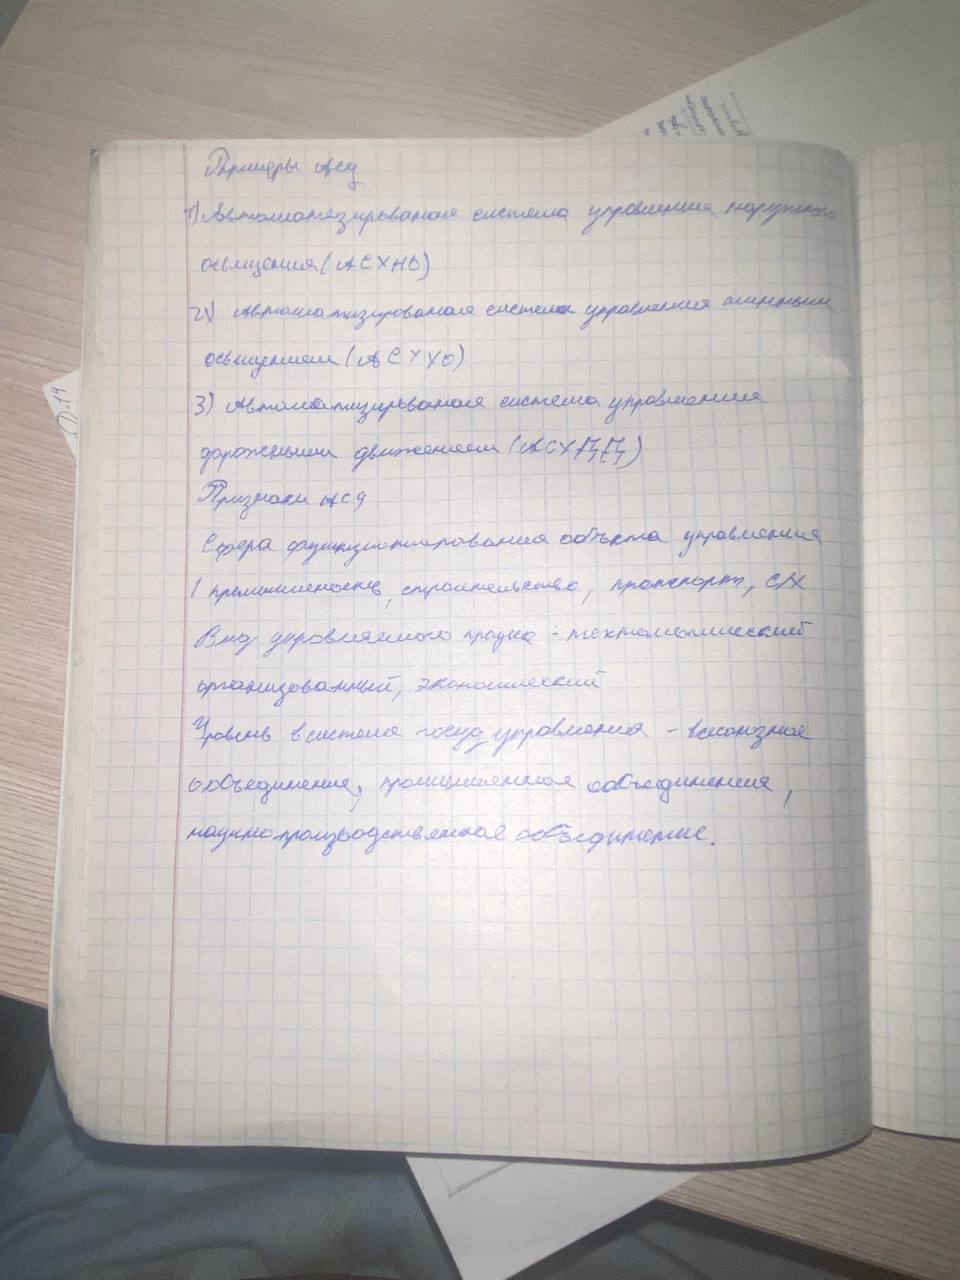 Примеры АСУ
1) Автоматизированая система управления наружного
освящения (АСУНО)
2) Автоматизированая система управления личным
освящением (АСУУО)
3) Автоматизированая система управления
дорожным движением (АСУДД)
Признаки АСУ
Сфера функционирования объекта управления
(промышленость, строительство, транспорт, с/х
Вид управляемого - технологический
организованный, экономический
в система госуд управления - всесоюзное
объединение, промышленное объединение,
научно производственное объединение.
D-14